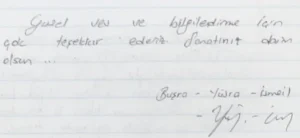 Güzel ve bilgilendirme için
çok teşekkür ederiz Sanatınız daim
olsun ...
Buşra - Yüsra - İsmail